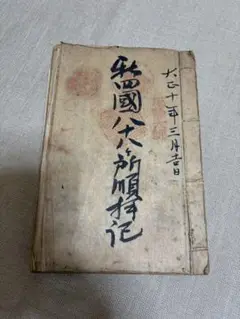 大正十年三月吉日
新四國八十八ヶ所順拝記